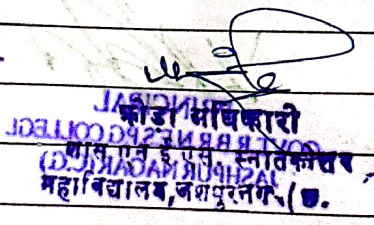 क्रीडा अधिकारी
शास. एन.ई.एस. स्नातकोत्तर
महाविद्यालय, जशपुरनगर (छ.
PRINCIPAL
GOVT.R.B.R.N.E.S.PG.COLLEGE
JASHPURNAGAR(C.G)